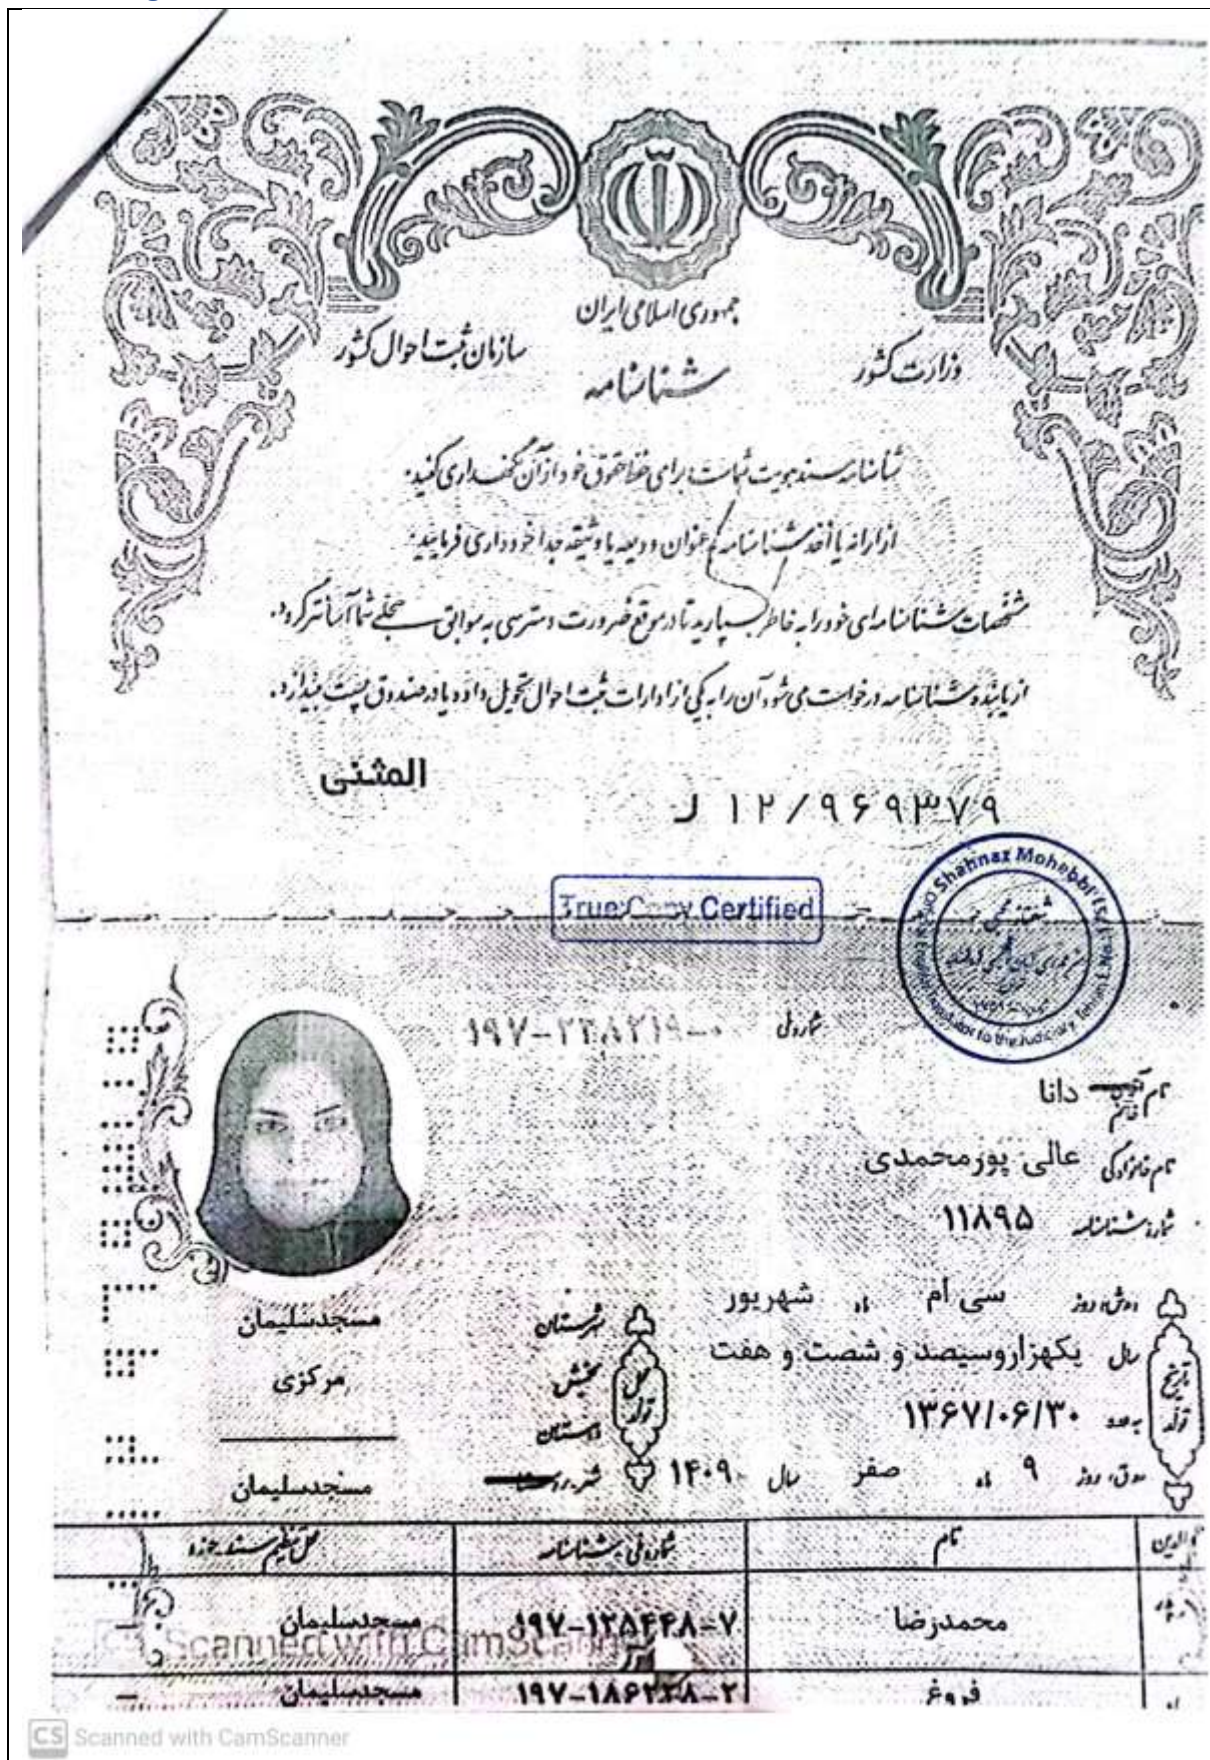 جمهوری اسلامی ایران
وزارت کشور
سازمان ثبت احوال کشور
شناسنامه
شناسنامه سند هویت شماست برای حفظ حقوق خود از آن نگهداری کنید.
از ارائه یا اخذ شناسنامه به عنوان ودیعه یا وثیقه جداً خودداری فرمایید.
مشخصات شناسنامه‌ای خود را به خاطر بسپارید تا در موقع ضرورت دسترسی به سوابق سجلی شما آسانتر گردد.
از یابنده شناسنامه درخواست می شود آن را به یکی از ادارات ثبت احوال تحویل داده یا در صندوق پست بیندازد.
المثنی
۱۲/۹۶۹۳۷۹ ل
True Copy Certified
Shahnaz Mohebbi
English Translator to the Judiciary, Tehran
شماره ملی
نام خانم دانا
نام خانوادگی عالی پورمحمدی
شماره شناسنامه ۱۱۸۹۵
تاریخ تولد
روز سی ام ماه شهریور
سال یکهزاروسیصد و شصت و هفت
به عدد ۱۳۶۷/۰۶/۳۰
روز ۹ ماه صفر سال ۱۴۰۹
محل تولد
شهرستان مسجدسلیمان
بخش مرکزی
دهستان
شهر مسجدسلیمان
والدین نام شماره ملی شناسنامه محل تنظیم سند حوزه
پدر محمدرضا ۱۹۷-۱۲۵۴۴۸-۷ مسجدسلیمان –
فروغ مسجدسلیمان –
Scanned with CamScanner
CS Scanned with CamScanner